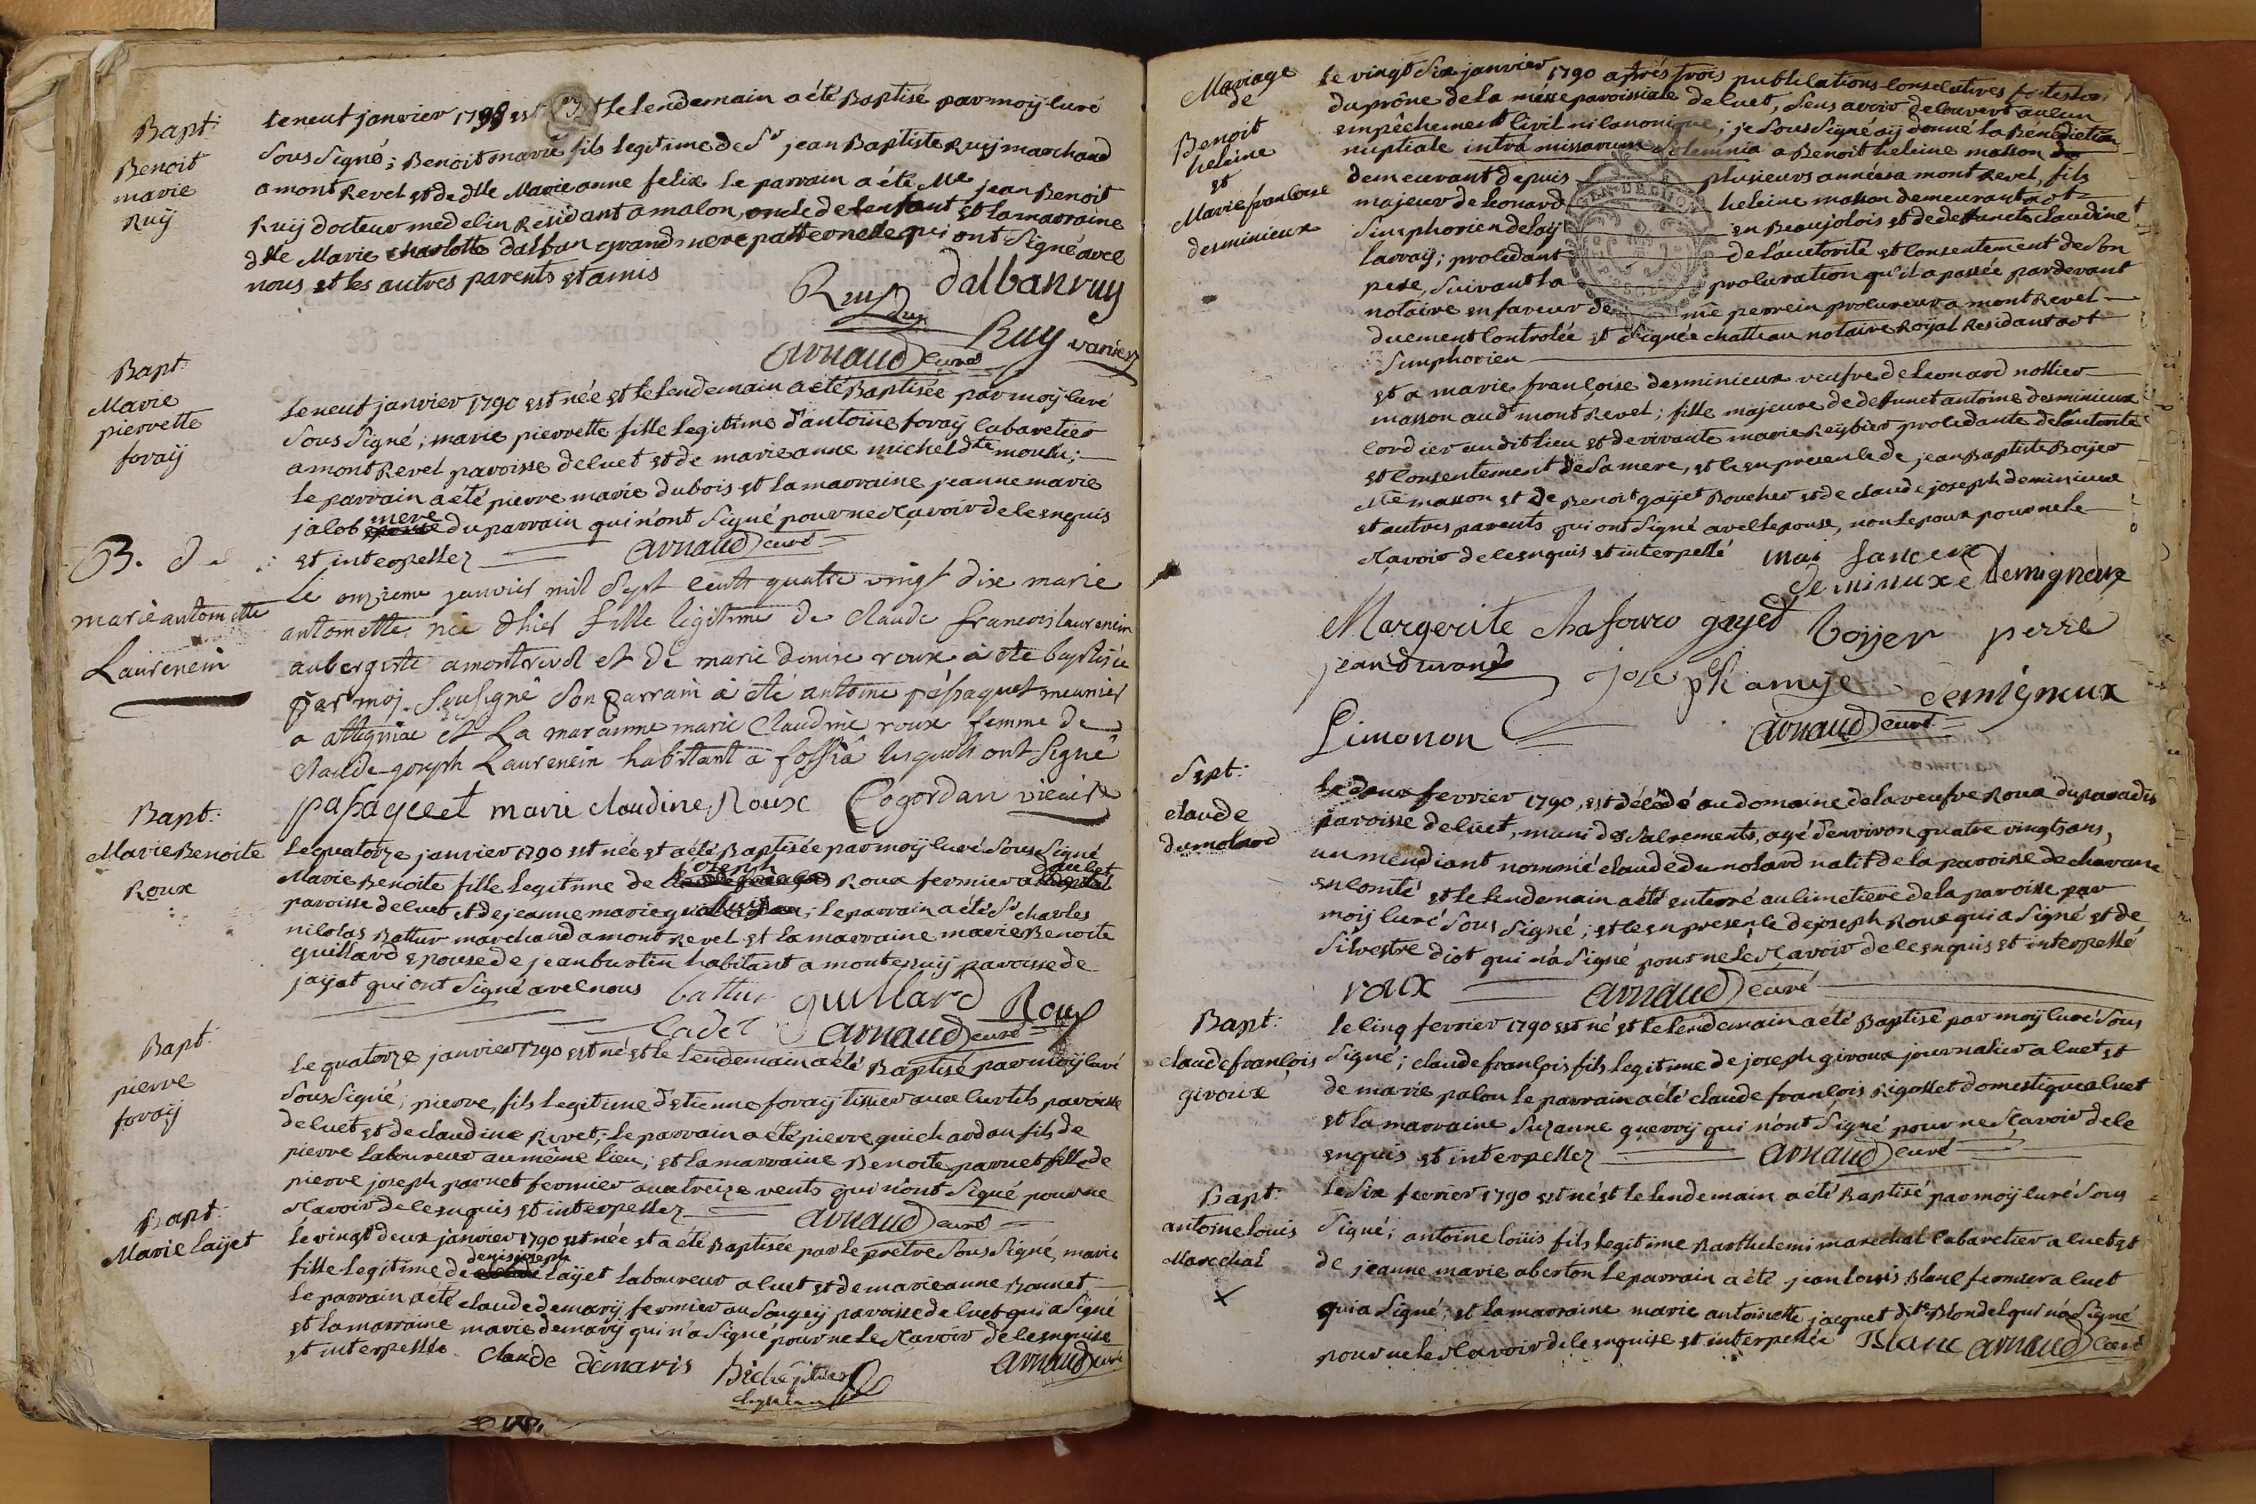 Bapt:
Benoit
marie
Ruÿ
le neuf janvier 1790 est né et le lendemain a été Baptisé par moÿ curé
sous signé; Benoit marie fils legitime de Sr jean Baptiste Ruÿ marchand
a mont Revel et de dlle Marie anne felix le parrain a été Me jean Benoit
Ruÿ docteur medecin Residant a malon, oncle de lenfant et la marraine
dlle Marie charlotte dalban grand mere patternelle qui ont signé avec
nous et les autres parents et amis
Ruy
dalban ruy
Ruy
arnaud curé
Bapt:
Marie
pierrette
foraÿ
Le neuf janvier 1790 est née et le lendemain a eté Baptisée par moÿ curé
sous signé; marie pierrette fille legitime d'antoine foraÿ Cabaretier
a mont Revel paroisse de cuet et de marie anne michel dte
le parrain a eté pierre marie dubois et la marraine jeanne marie
jacob mere du parrain qui n'ont signé pour ne sçavoir de ce enquis
et interpellez arnaud curé
B. de
marie antoinette
Laurencin
Le onzieme janvier mil sept cents quatre vingt dix marie
antoinette née d'hier fille legitime de Claude francois laurencin
aubergiste a montrevel et de marie denise roux à été baptisée
par moi sousigné son parrain à été antoine passaquet meunier
a attigniac et La maraine marie Claudine roux femme de
claude joseph Laurencin habitant à foissiâ lesquels ont signé
passaqueet marie claudine Roux Cogordan vicaire
Bapt:
Marie Benoite
Roux
Le quatorze janvier 1790 est née et a été Baptisée par moÿ curé sous signé
Marie Benoite fille legitime de joseph Roux fermier a
paroisse de cuet et de jeanne marie; le parrain a été Sr charles
nicolas Battur marchand a mont Revel et la marraine marie Benoite
guillard epouse de jean burtin habitant a montenuÿ paroisse de
jaÿat qui ont signé avec nous
battur guillard Roux
Cadet arnaud curé
Bapt:
pierre
foraÿ
Le quatorze janvier 1790 est né et le lendemain a été Baptisé par moÿ curé
sous signé; pierre, fils legitime d'etienne foraÿ tissier aux curtils paroisse
de cuet et de claudine Rivet; le parrain a été pierre guichardan fils de
pierre laboureur au même lieu; et la marraine Benoite parnet fille de
pierre joseph parnet fermier aux treize vents qui n'ont signé pour ne
sçavoir de ce enquis et interpellez arnaud curé
Bapt:
Marie laÿet
Le vingt deux janvier 1790 est née et a été Baptisée par le prêtre sous signé, marie
fille legitime de denis joseph laÿet laboureur a cuet et de marie anne Bonnet
le parrain a été claude demarÿ fermier au Songeÿ paroisse de cuet qui a signé
et la marraine marie demarÿ qui n'a signé pour ne le sçavoir de ce enquise
et interpellée. Claude demaris
arnaud curé
Mariage
de
Benoit
heleine
et
Marie françoise
desminieux
Le vingt six janvier 1790 aprés trois publications consecutives faites
du prône de la messe paroissiale de cuet, sens avoir decouvert aucun
empêchement Civil ni Canonique; je sous signé aÿ donné la Bénédiction
nuptiale intra missarum solemnia a Benoit heleine masson
demeurant depuis plusieurs années a mont Revel, fils
majeur de leonard heleine masson demeurant a st
simphorien de laÿ en Beaujolois et de defuncte claudine
larraÿ; procedant de l'autorité et consentement de son
pere, suivant la procuration qu'il a passée pardevant
notaire en faveur de me perrein procureur a mont Revel
duement controlée et signée chatteau notaire Royal Residant a st
simphorien
et a marie françoise desminieux veufve de leonard nollier
masson audt mont Revel; fille majeure de defunct antoine desminieux
Cordier audit lieu et de vivante marie Reÿbier procedante de l'autorité
et consentement de sa mere, et ce en presence de jean Baptiste Boÿer
me masson et de Benoit gaÿet Boucher et de claude joseph deminieux
et autres parents qui ont signé avec lepouse, non lepoux pour ne le
sçavoir de ce enquis et interpellé mai fancoix
deminuxe demigneux
Margerite chafouro gayed boyer perre
jean durand joseph amye demigneux
Limonon arnaud curé
Sept:
claude
dumolard
Le deux fevrier 1790, est décédé au domaine de la veufve Roux du paradis
paroisse de cuet, muni des sacrements, agé d'environ quatre vingts ans,
un mendiant nommé claude dumolard natif de la paroisse de chavane
en comté et le lendemain a été enterré au cimetiere de la paroisse par
moÿ curé sous signé; et ce en presence de joseph Roux qui a signé et de
silvestre diot qui n'a signé pour ne le sçavoir de ce enquis et interpellé
roux arnaud curé
Bapt:
claude françois
giroux
Le cinq fevrier 1790 est né et le lendemain a été Baptisé par moÿ curé sous
signé; claude françois fils legitime de joseph giroux journalier a cuet et
de marie palou le parrain a été claude françois Rigollet domestique a cuet
et la marraine Suzanne guerrÿ qui n'ont signé pour ne sçavoir de ce
enquis et interpellez arnaud curé
Bapt:
antoine louis
Marechal
Le six fevrier 1790 est né et le lendemain a été Baptisé par moÿ curé sous
signé; antoine louis fils legitime Barthelemi marechal Cabaretier a cuet et
de jeanne marie aberton le parrain a été jean louis Blanc fermier a cuet
qui a signé; et la marraine marie antoinette jacquet dite Blondel qui n'a signé
pour ne le sçavoir de ce enquise et interpellée Blanc arnaud curé